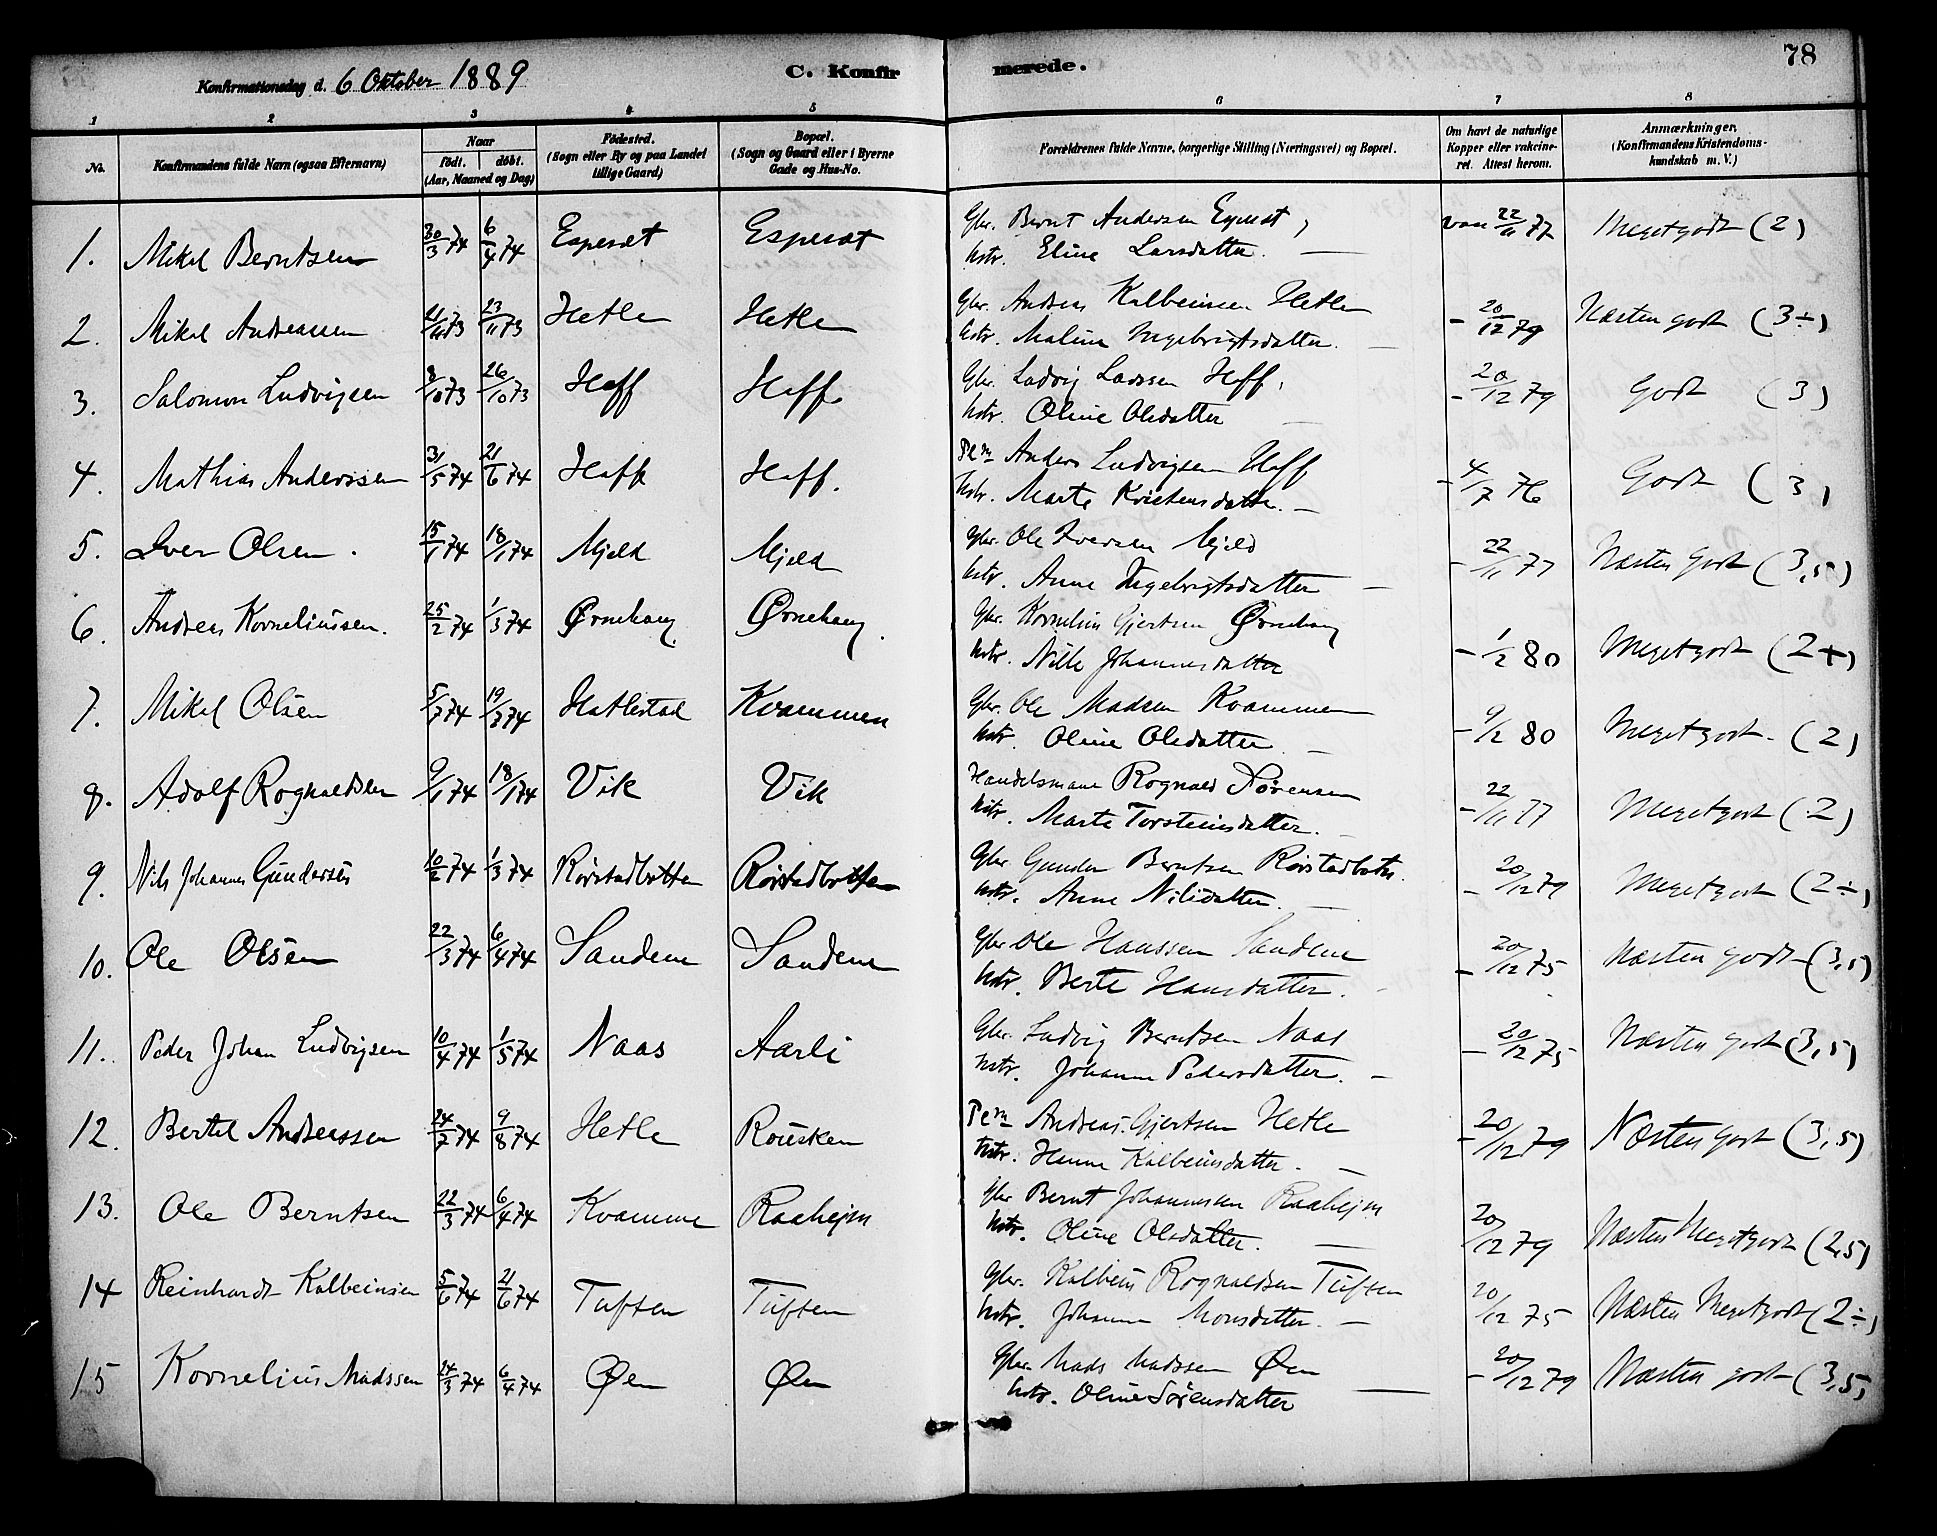 78
Konfirmationsdag d. 6 Oktober 1889
C. Konfirmerede.
1 2 3 4 5 6 7 8
No.
Konfirmandens fulde Navn (ogsaa Efternavn)
Naar
födt. döbt.
(Aar, Maaned og Dag)
Födested.
(Sogn eller By og paa Landet
tillige Gaard)
Bopæl.
(Sogn og Gaard eller i Byerne
Gade og Hus-No.
Forældrenes fulde Navne, borgerlige Stilling (Næringsvei) og Bopæl.
Om havt de naturlige
Kopper eller vakcine-
ret. Attest herom.
Anmærkninger.
(Konfirmandens Kristendoms-
kundskab m. V.)
1. Mikal Berntsen 30/3 74 6/4 74 Espesæt Espesæt Gbr. Bernt Andersen Espesæt, vac 22/11 77 Megetgodt (2)
hstr. Eline Larsdatter. —
2. Mikal Andreassen 73 23/11 73 Hetle Hetle Gbr. Andreas Kolbeinsen Hetle - 20/12 79 Næsten godt (3÷)
hstr. Maline Ingebrigtsdatter. —
3. Salomon Ludvigsen 8/10 73 26/10 73 Haff Haff. Gbr. Ludvig Larssen Haff, - 20/12 79 Godt (3)
hstr. Oline Olsdatter —
4. Mathias Anderssen 31/5 74 21/6 74 Haff Haff. Plm Anders Ludvigsen Haff - 4/7 76 Godt (3)
hstr. Marte Kristensdatter. —
5. Iver Olsen. 15/1 74 18/1 74 Mjeld Mjeld Gbr. Ole Iversen Mjeld - 22/11 77 Næsten godt (3,5)
hstr. Anne Ingebrigtsdatter —
6. Andreas Korneliussen. 25/2 74 1/3 74 Ørnehaug Ørnehaug. Gbr. Kornelius Gjertsen Ørnehaug - 1/2 80 Megetgodt (2+)
hstr. Nille Johannesdatter
7. Mikal Olsen 5/7 74 19/7 74 Hatlestad Kvammen Gbr. Ole Madsen Kvammen - 9/12 80 Megetgodt. (2)
hstr. Oline Olsdatter. —
8. Adolf Rognaldsen 9/1 74 18/1 74 Vik Vik Handelsmann Rognald Sørensen - 22/11 77 Megetgodt (2)
hstr. Marte Torsteinsdatter. —
9. Nils Johannes Gundersen 10/2 74 1/3 74 Rørstadbotten Rørstadbotten Gbr. Gunder Berntsen Rørstadbotten. - 20/12 79 Megetgodt (2÷)
hstr. Anne Nilsdatter. —
10. Ole Olsen 22/3 74 6/4 74 Sandene Sandene Gbr. Ole Hanssen Sandene - 20/12 75 Næsten godt (3,5)
hstr. Berte Hansdatter. -
11. Peder Johan Ludvigsen 10/4 74 1/5 74 Naas Aarli Gbr. Ludvig Berntsen Naas - 20/12 75 Næsten godt (3,5)
hstr. Johanne Pedersdatter. —
12. Bertel Andreassen 24/7 74 9/8 74 Hetle Rousken Plm Andreas Gjertsen Hetle - 20/12 79 Næsten godt (3,5)
hstr. Hanna Kolbeinsdatter. —
13. Ole Berntsen 22/3 74 6/4 74 Kvamme Raaheim Gbr Bernt Johannessen Raaheim 20/12 79 Næsten Megetgodt (2,5)
hstr. Oline Olsdatter. —
14 Reinhardt Kolbeinsen 5/6 74 21/6 74 Tuften Tuften Gbr. Kolbein Rognaldsen Tuften 20/12 75 Næsten Megetgodt (2÷)
hstr. Johanne Monsdatter. —
15 Kornelius Madssen 24/3 74 6/4 74 Øen Øen Gbr. Mads Madssen Øen - 20/12 79 Næsten godt (3,5)
hstr. Oline Sørensdatter —